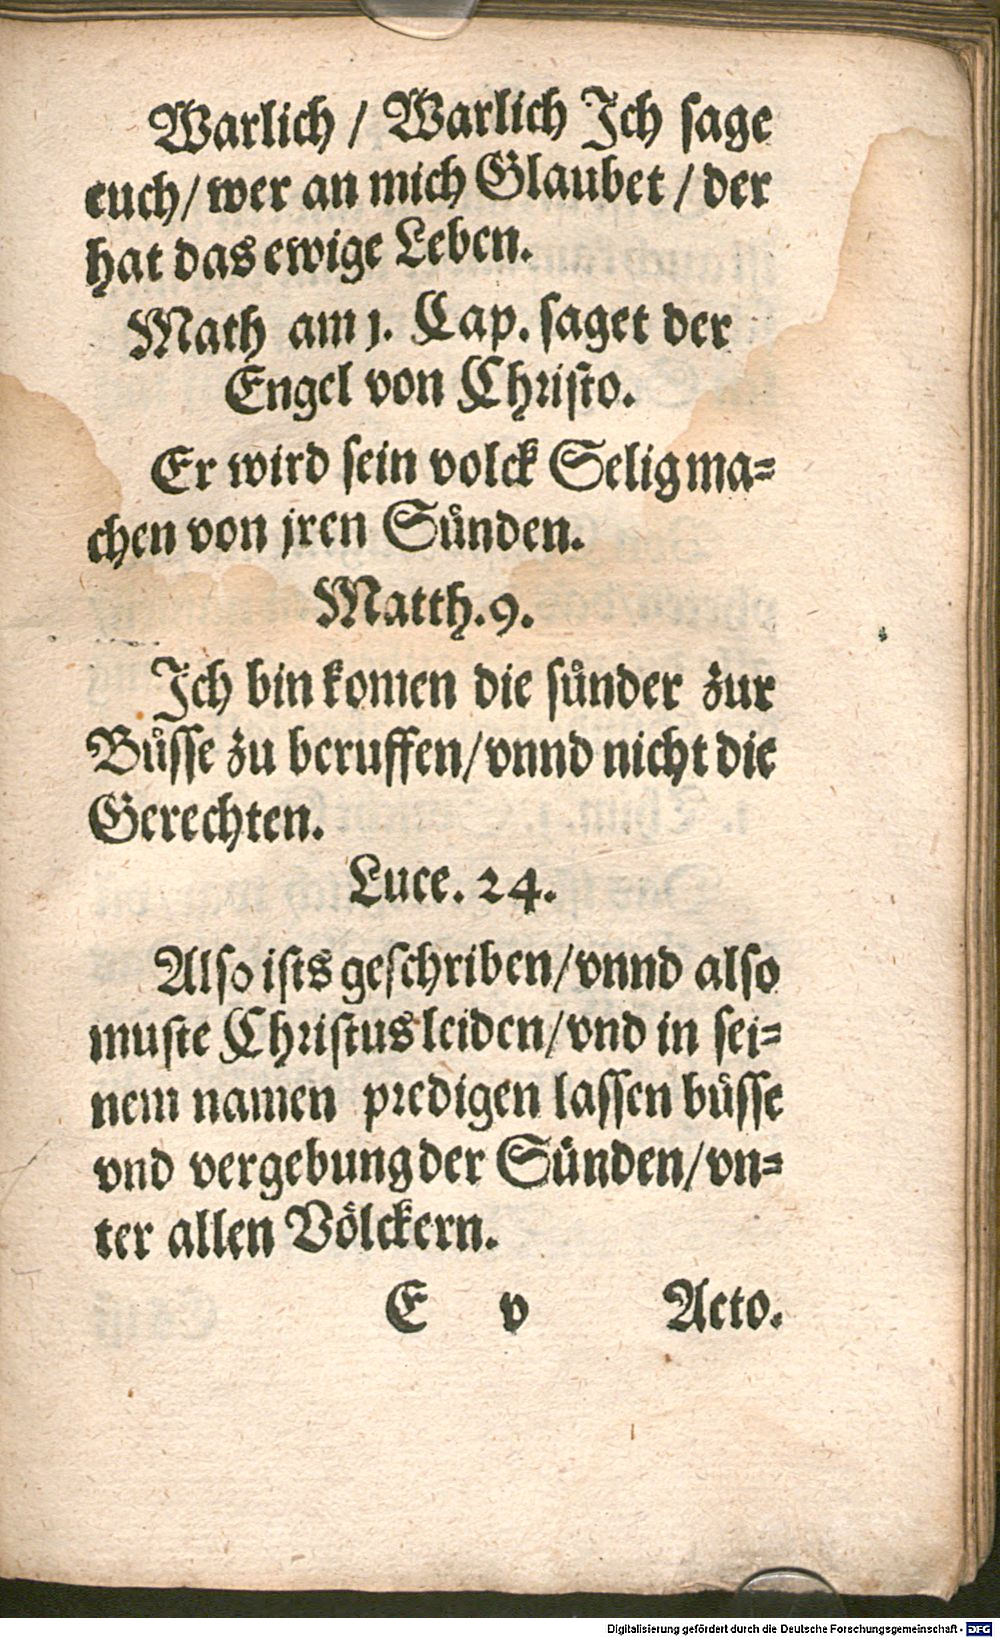 Warlich / Warlich Ich sage
euch / wer an mich Glaubet / der
hat das ewige Leben.
Math am 1. Cap. saget der
Engel von Christo.
Er wird sein volck Selig ma⸗
chen von jren Sünden.
Matth. 9.
Ich bin komen die sünder zur
Büsse zu beruffen / vnnd nicht die
Gerechten.
Luce. 24.
Also ists geschriben / vnnd also
muste Christus leiden / vnd in sei⸗
nem namen predigen lassen büsse
vnd vergebung der Sünden / vn⸗
ter allen Völckern.
E v Acto.
Digitalisierung gefördert durch die Deutsche Forschungsgemeinschaft - DFG